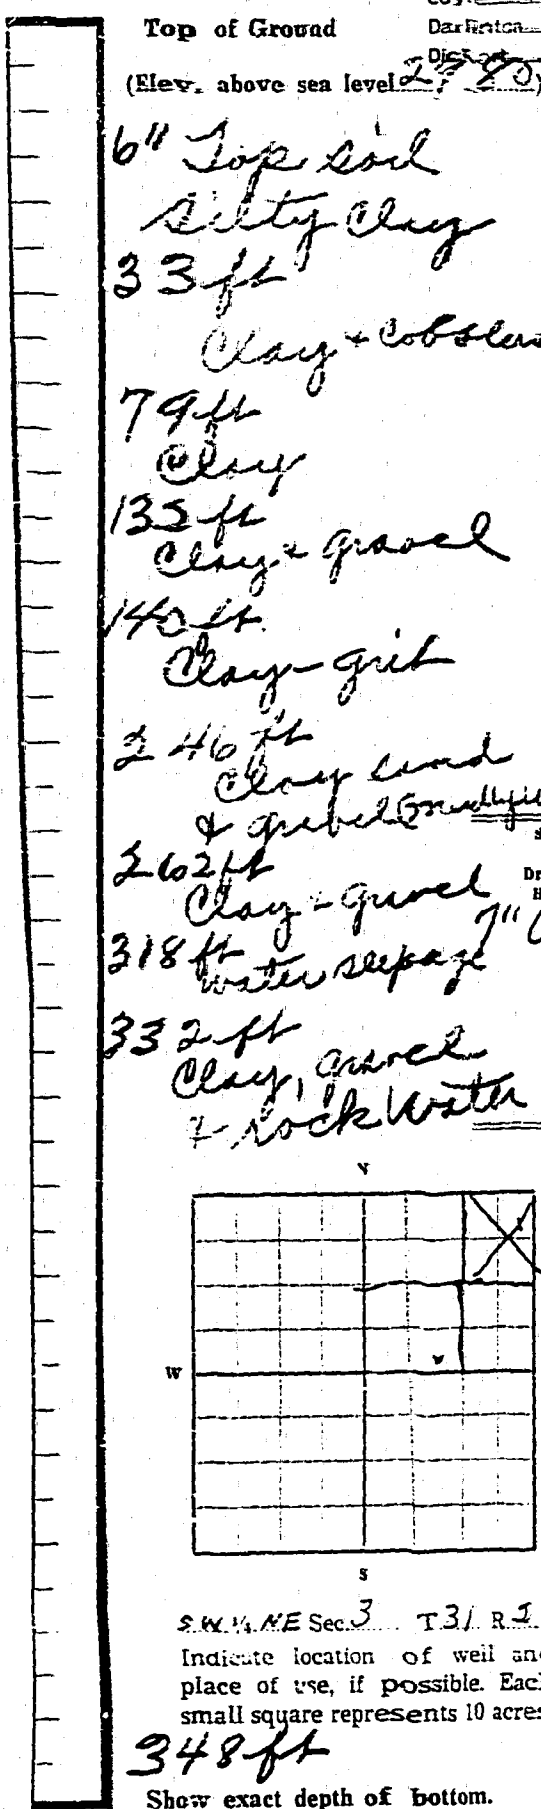 Top of Ground
(Elev. above sea level 2980)
6" Top soil
silty Clay
33 ft
Clay + Cobblers
79 ft
Clay
135 ft
Clay + gravel
140 ft
Clay - grit
246 ft
Clay sand
& gravel
262 ft
Clay - gravel
7"
318 ft
water seepage
332 ft
Clay, gravel
+ rock water
W
S
S.W. ¼ NE Sec. 3 T 31 R
Indicate location of well and
place of use, if possible. Each
small square represents 10 acres
348 ft
Show exact depth of bottom.